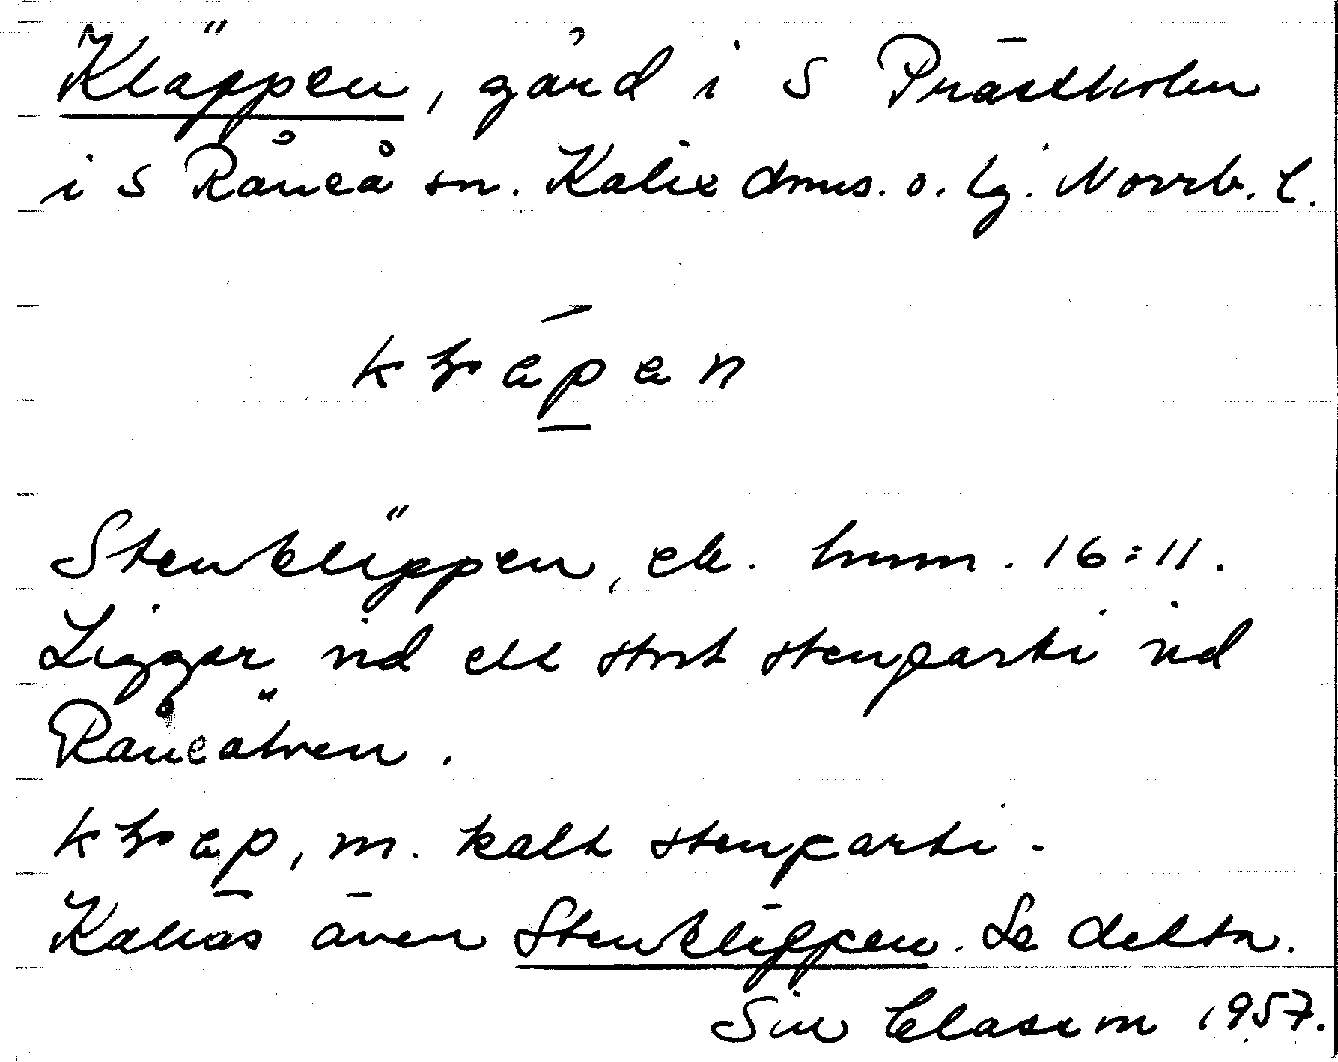 Kläppen, gård i S Prästholm
i S Råneå sn. Kalix dms. o. lg. Norrb. l.
Stenkläppen, ek. hmm. 16:11.
Ligger vid ett stort stenparti vid
Råneälven.
m. kalt stenparti.
Kallas även Stenkläppen. Se detta.
Siv Classon 1957.